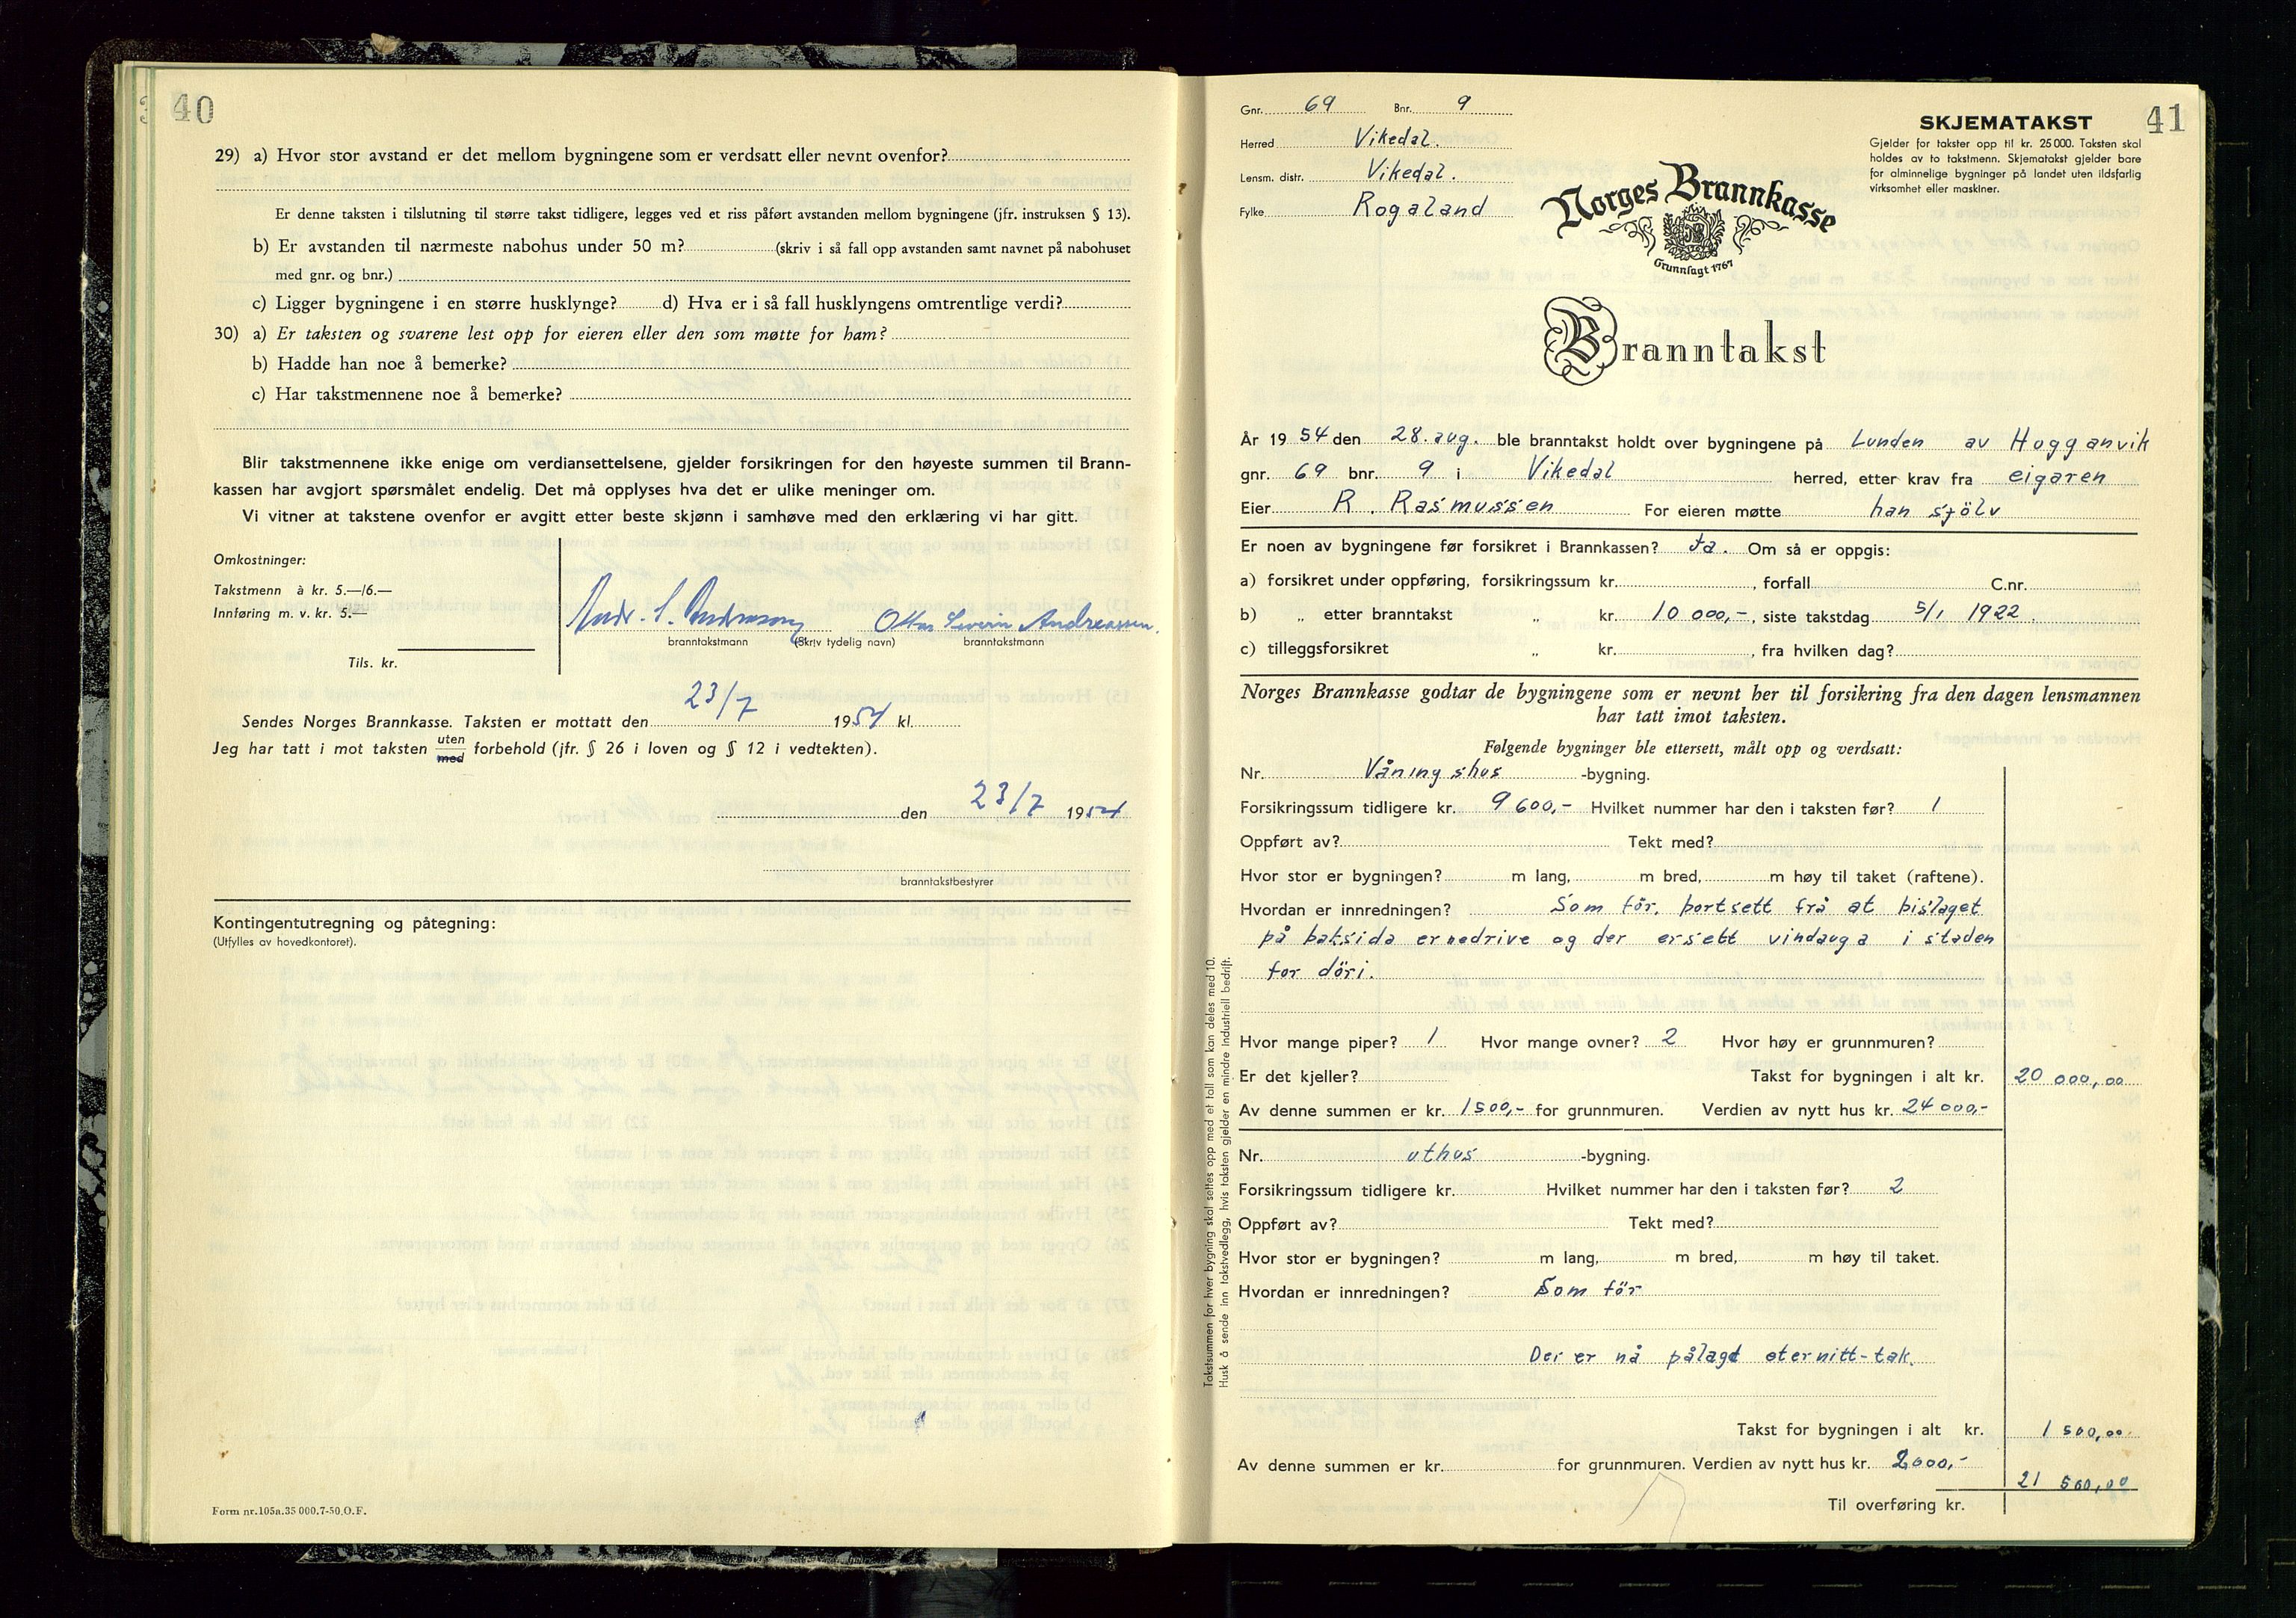 40
29) a) Hvor stor avstand er det mellom bygningene som er verdsatt eller nevnt ovenfor?
Er denne taksten i tilslutning til større takst tidligere, legges ved et riss påført avstanden mellom bygningene (jfr. instruksen § 13).
b) Er avstanden til nærmeste nabohus under 50 m? (skriv i så fall opp avstanden samt navnet på nabohuset
med gnr. og bnr.)
c) Ligger bygningene i en større husklynge? d) Hva er i så fall husklyngens omtrentlige verdi?
30) a) Er taksten og svarene lest opp for eieren eller den som møtte for ham?
b) Hadde han noe å bemerke?
c) Har takstmennene noe å bemerke?
Blir takstmennene ikke enige om verdiansettelsene, gjelder forsikringen for den høyeste summen til Brann-
kassen har avgjort spørsmålet endelig. Det må opplyses hva det er ulike meninger om.
Vi vitner at takstene ovenfor er avgitt etter beste skjønn i samhøve med den erklæring vi har gitt.
Omkostninger:
Takstmenn à kr. 5.—/6.—
Innføring m. v. kr. 5.—
Tils. kr.
Andr. S. Andreasen Otto Severin Andreassen.
branntakstmann (Skriv tydelig navn) branntakstmann
Sendes Norges Brannkasse. Taksten er mottatt den 23/7 1954 kl.
Jeg har tatt i mot taksten uten
med forbehold (jfr. § 26 i loven og § 12 i vedtekten).
den 23/7 1954
branntakstbestyrer
Kontingentutregning og påtegning:
(Utfylles av hovedkontoret).
Form nr. 105a. 35 000. 7-50. O. F.
41
Gnr. 69 Bnr. 9
Herred Vikedal.
Lensm. distr. Vikedal.
Fylke Rogaland
SKJEMATAKST
Gjelder for takster opp til kr. 25 000. Taksten skal
holdes av to takstmenn. Skjematakst gjelder bare
for alminnelige bygninger på landet uten ildsfarlig
virksomhet eller maskiner.
Norges Brannkasse
Grunnlagt 1767
Branntakst
År 1954 den 28. aug. ble branntakst holdt over bygningene på Lunden av Hogganvik
gnr. 69 bnr. 9 i Vikedal herred, etter krav fra eigaren
Eier R. Rasmussen For eieren møtte han sjölv
Er noen av bygningene før forsikret i Brannkassen? Ja. Om så er oppgis:
a) forsikret under oppføring, forsikringssum kr. , forfall C.nr.
b) „ etter branntakst „ kr. 10 000,- , siste takstdag 5/1 1922.
c) tilleggsforsikret „ kr. , fra hvilken dag?
Norges Brannkasse godtar de bygningene som er nevnt her til forsikring fra den dagen lensmannen
har tatt imot taksten.
Følgende bygninger ble ettersett, målt opp og verdsatt:
Nr. Våningshus -bygning.
Forsikringssum tidligere kr. 9 600,- Hvilket nummer har den i taksten før? 1
Oppført av? Tekt med?
Hvor stor er bygningen? m lang, m bred, m høy til taket (raftene).
Hvordan er innredningen? Som för, bortsett frå at bislaget
på baksida er nedrive og der er sett vindauga i staden
for döri.
Hvor mange piper? 1 Hvor mange ovner? 2 Hvor høy er grunnmuren?
Er det kjeller? Takst for bygningen i alt kr. 20 000,00
Av denne summen er kr. 1500,- for grunnmuren. Verdien av nytt hus kr. 24 000,-
Nr. uthus -bygning.
Forsikringssum tidligere kr. Hvilket nummer har den i taksten før? 2
Oppført av? Tekt med?
Hvor stor er bygningen? m lang, m bred, m høy til taket.
Hvordan er innredningen? Som för
Der er nå pålagt eternitt-tak.
Takst for bygningen i alt kr. 1 500,00
Av denne summen er kr. for grunnmuren. Verdien av nytt hus kr. 2000,-
21 500,00
Til overføring kr.
Takstsummen for hver bygning skal settes opp med et tall som kan deles med 10.
Husk å sende inn takstvedlegg, hvis taksten gjelder en mindre industriell bedrift.